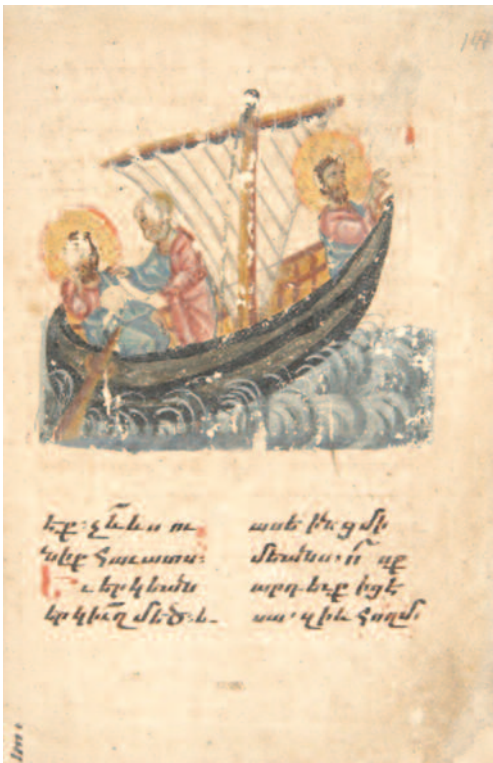 էք· չեւևս ու
նիք հաւատս։
Եւ երկեան
երկիւղ մեծ· և
ասէին ցմի
մեանս· ո՞ ոք
արդեւք իցէ
սա· զի և հողմ·